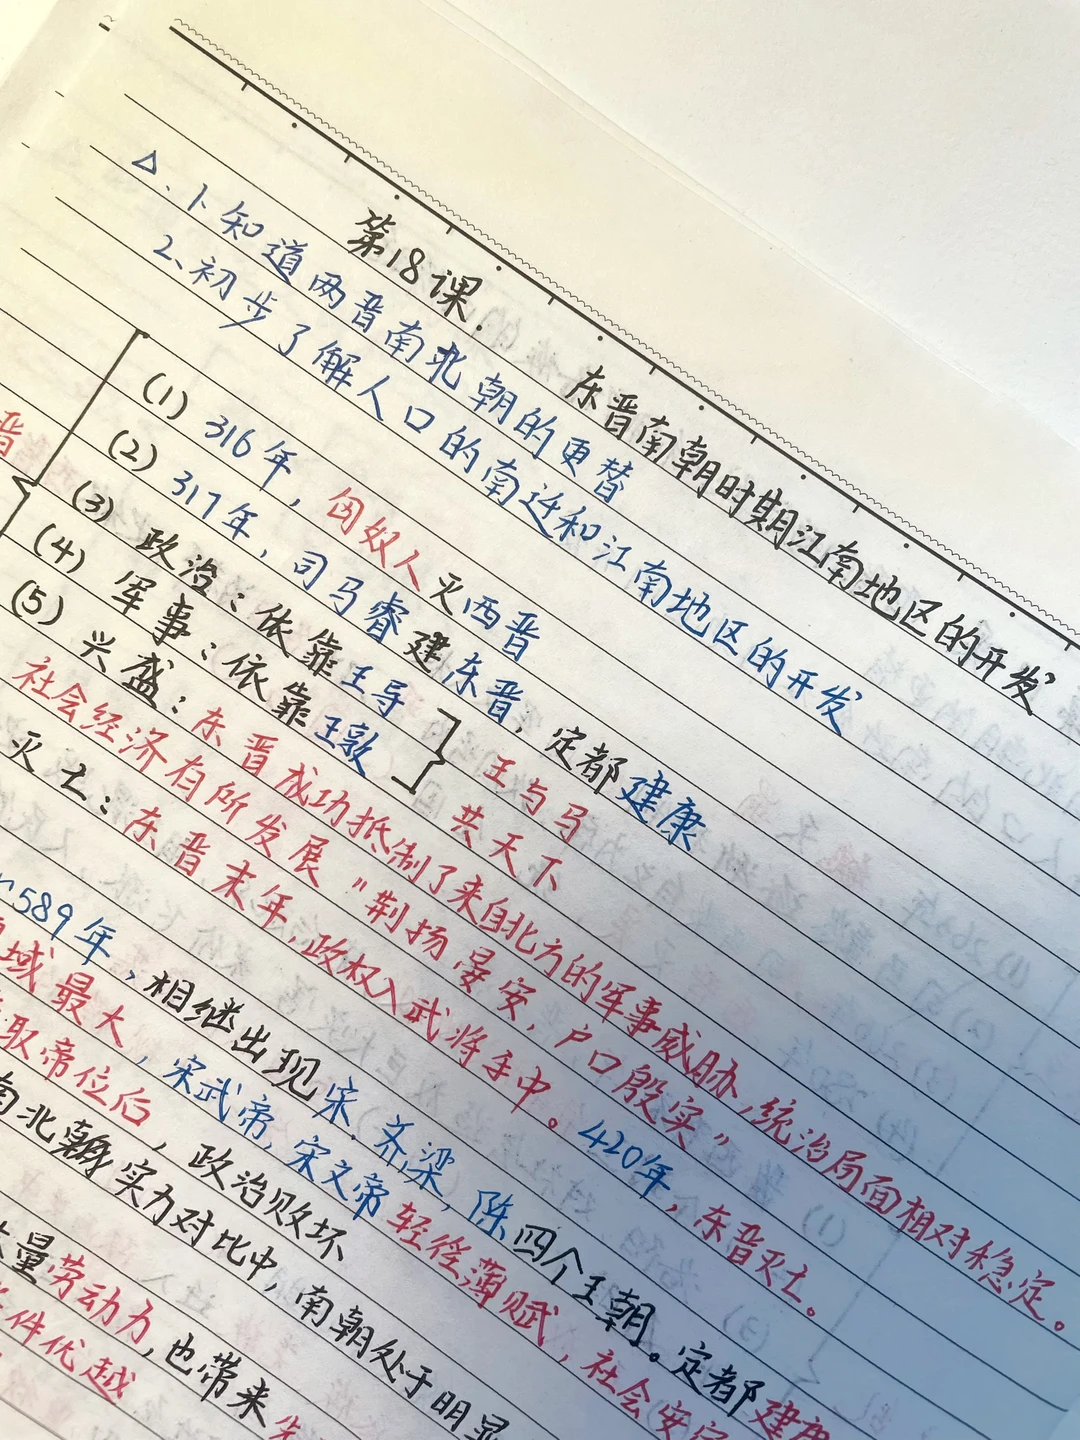 第18课. 东晋南朝时期江南地区的开发
△. 1、知道两晋南北朝的更替
2、初步了解人口的南迁和江南地区的开发
(1) 316年, 匈奴人灭西晋
(2) 317年, 司马睿建东晋, 定都建康
(3) 政治: 依靠王导
(4) 军事: 依靠王敦
王与马
共天下
晋
(5) 兴盛: 东晋成功抵制了来自北方的军事威胁, 统治局面相对稳定。
社会经济有所发展 "荆扬晏安, 户口殷实"
灭亡: 东晋末年, 政权入武将手中。420年, 东晋灭亡。
~589年, 相继出现宋. 齐, 梁, 陈四个王朝。定都建康
域最大, 宋武帝, 宋文帝轻徭薄赋, 社会安定
取帝位后, 政治败坏
南北朝实力对比中, 南朝处于明显
量劳动力, 也带来先
件优越